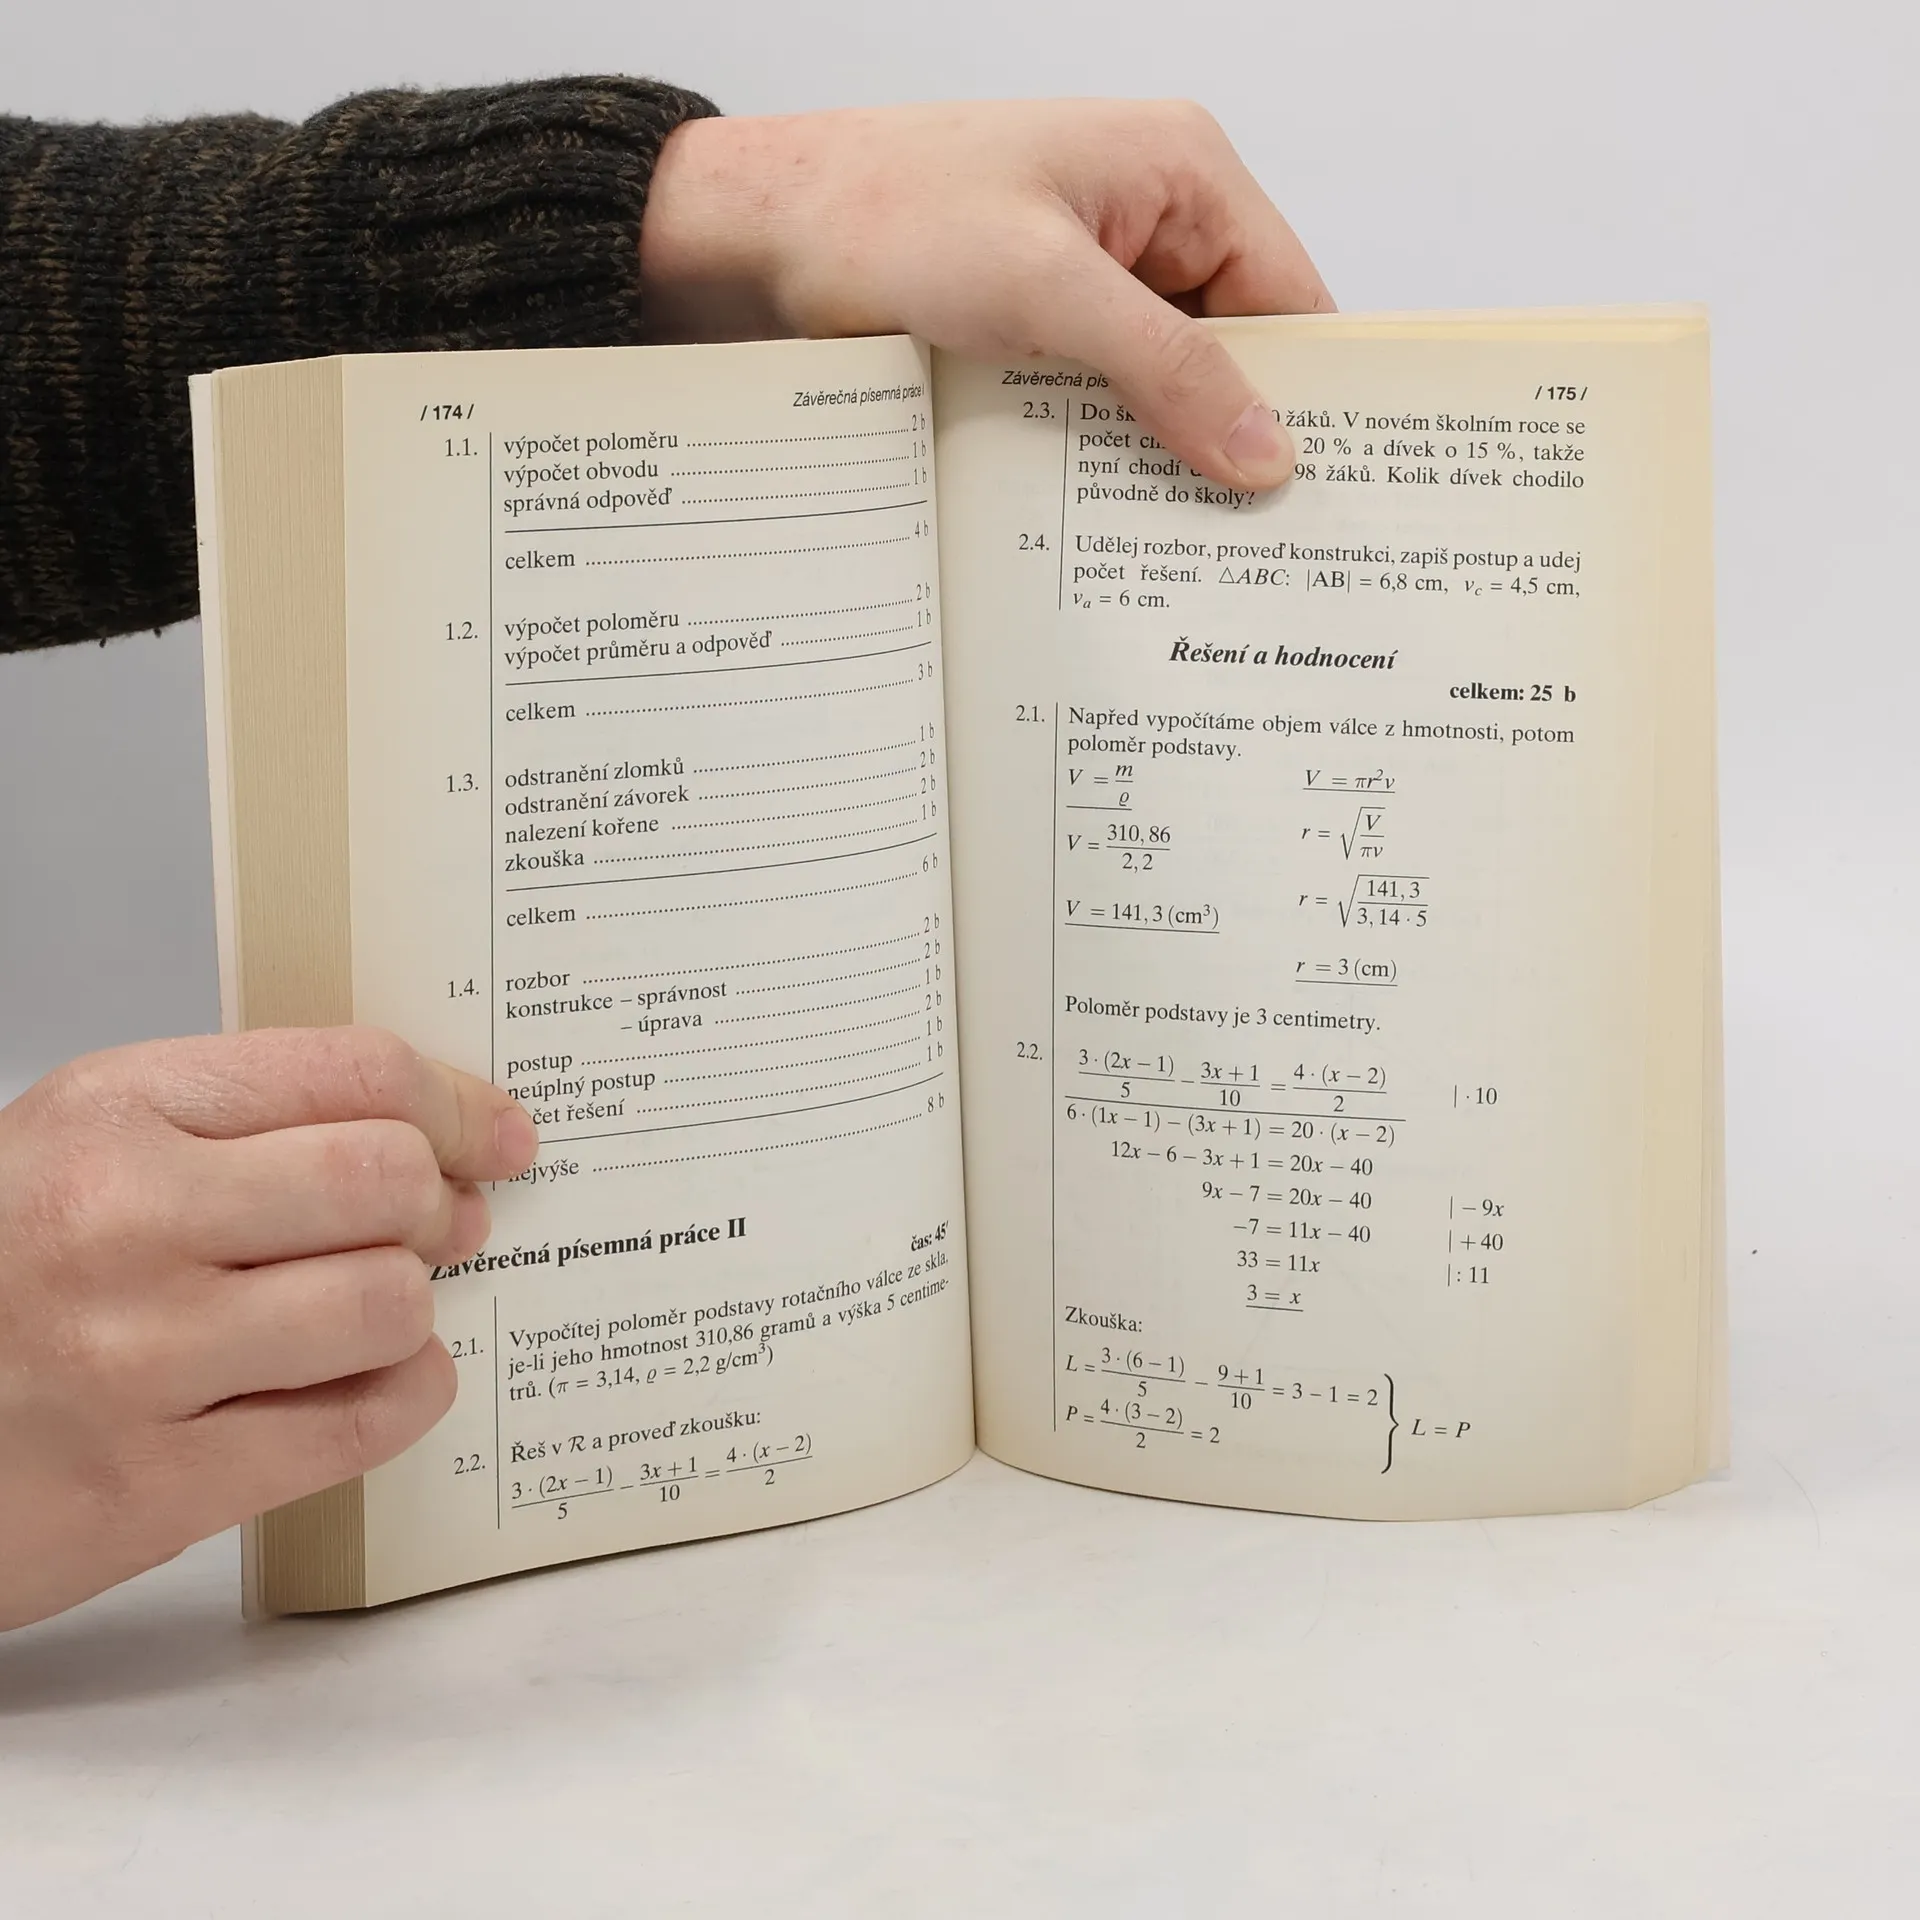 / 174 /
Závěrečná písemná práce I
1.1. výpočet poloměru .......... 2 b
výpočet obvodu .......... 1 b
správná odpověď .......... 1 b
celkem .......... 4 b
1.2. výpočet poloměru .......... 2 b
výpočet průměru a odpověď .......... 1 b
celkem .......... 3 b
1.3. odstranění zlomků .......... 1 b
odstranění závorek .......... 2 b
nalezení kořene .......... 2 b
zkouška .......... 1 b
celkem .......... 6 b
1.4. rozbor .......... 2 b
konstrukce – správnost .......... 2 b
– úprava .......... 1 b
postup .......... 2 b
neúplný postup .......... 1 b
čet řešení .......... 1 b
ejvýše .......... 8 b
Závěrečná písemná práce II
čas: 45'
2.1. Vypočítej poloměr podstavy rotačního válce ze skla,
je-li jeho hmotnost 310,86 gramů a výška 5 centime-
trů. (π = 3,14, ϱ = 2,2 g/cm³)
2.2. Řeš v R a proveď zkoušku:
3 · (2x – 1) / 5 – 3x + 1 / 10 = 4 · (x – 2) / 2
Závěrečná pís
/ 175 /
2.3. Do šk žáků. V novém školním roce se
počet 20 % a dívek o 15 %, takže
nyní chodí 98 žáků. Kolik dívek chodilo
původně do školy?
2.4. Udělej rozbor, proveď konstrukci, zapiš postup a udej
počet řešení. △ABC: |AB| = 6,8 cm, v_c = 4,5 cm,
v_a = 6 cm.
Řešení a hodnocení
celkem: 25 b
2.1. Napřed vypočítáme objem válce z hmotnosti, potom
poloměr podstavy.
V = m / ϱ
V = 310, 86 / 2, 2
V = 141, 3 (cm³)
V = πr²v
r = √(V / πv)
r = √(141, 3 / 3, 14 · 5)
r = 3 (cm)
Poloměr podstavy je 3 centimetry.
2.2. 3 · (2x – 1) / 5 – 3x + 1 / 10 = 4 · (x – 2) / 2 | · 10
6 · (1x – 1) – (3x + 1) = 20 · (x – 2)
12x – 6 – 3x + 1 = 20x – 40
9x – 7 = 20x – 40 | – 9x
–7 = 11x – 40 | + 40
33 = 11x | : 11
3 = x
Zkouška:
L = 3 · (6 – 1) / 5 – 9 + 1 / 10 = 3 – 1 = 2
P = 4 · (3 – 2) / 2 = 2
L = P